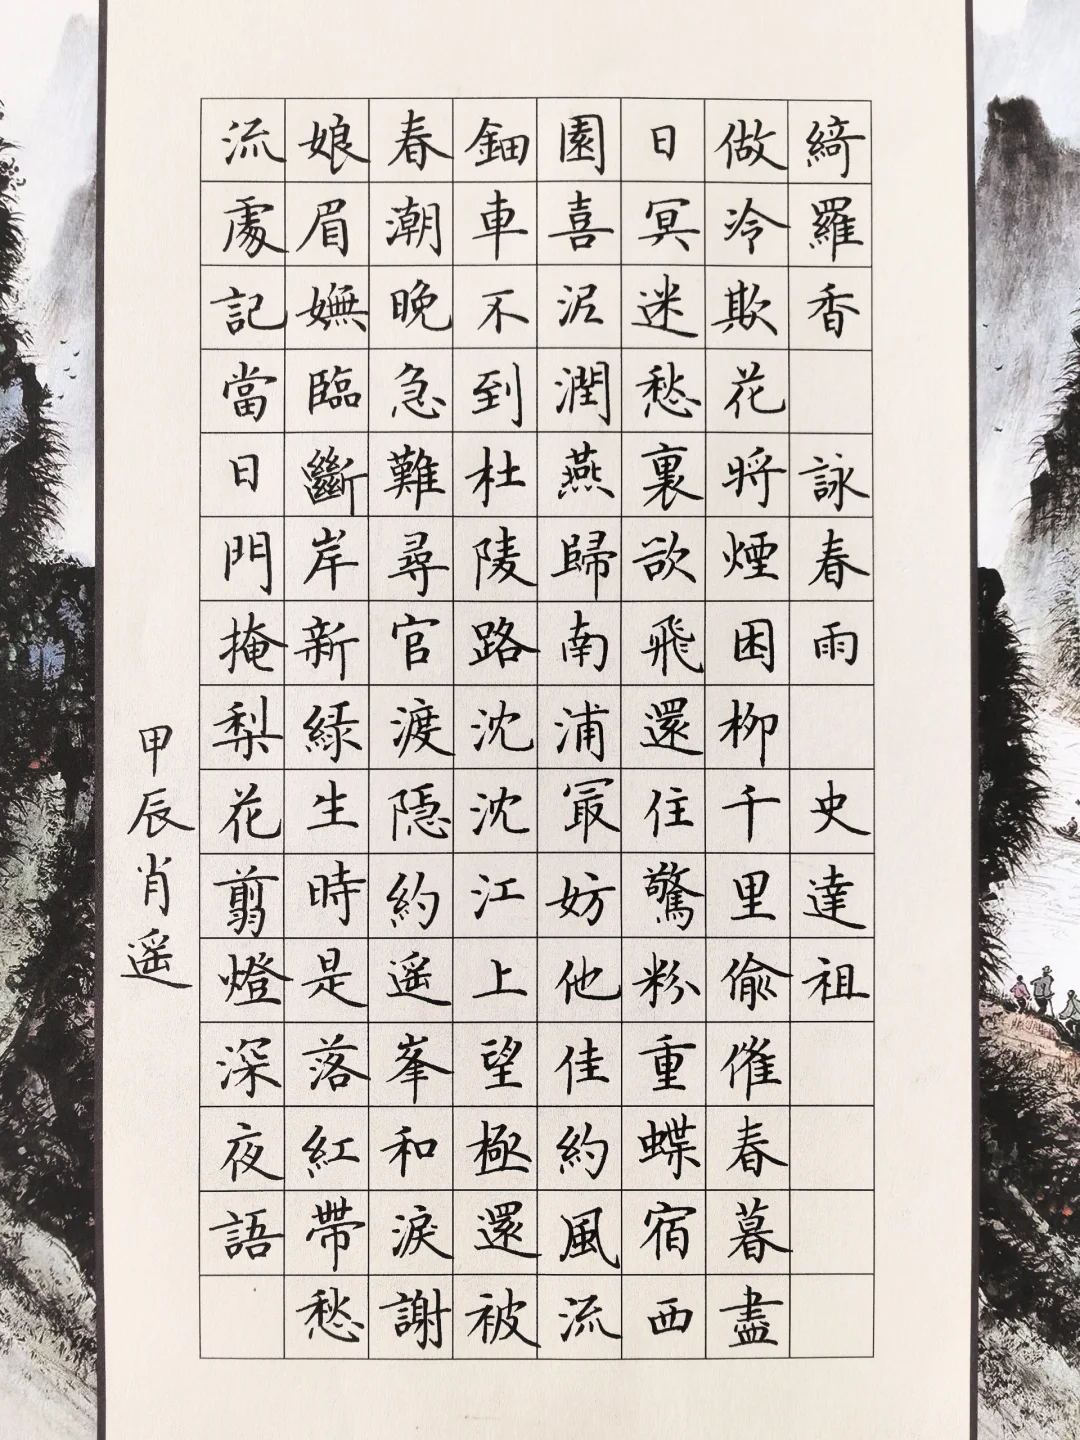 綺羅香 詠春雨 史達祖
做冷欺花將煙困柳千里偷催春暮盡
日冥迷愁裏欲飛還住驚粉重蝶宿西
園喜泥潤燕歸南浦最妨他佳約風流
鈿車不到杜陵路沈沈江上望極還被
春潮晚急難尋官渡隱約遥峯和淚謝
娘眉嫵臨斷岸新綠生時是落紅帶愁
流處記當日門掩梨花剪燈深夜語
甲辰肖遥